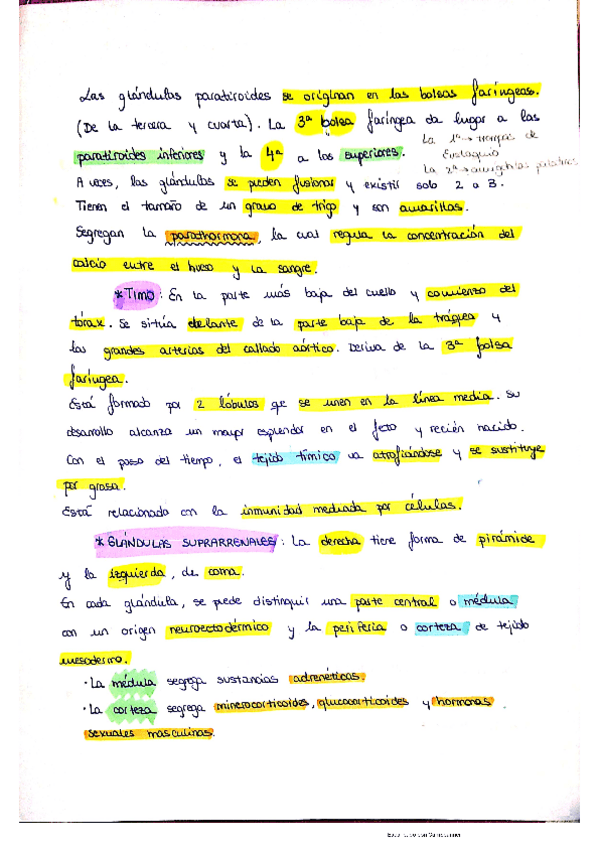 Las glándulas paratiroides se originan en las bolsas faríngeas.
(De la tercera y cuarta). La 3ª bolsa faríngea da lugar a las
La 1ª → trompa de
paratiroides inferiores y la 4ª a las superiores.
Eustaquio
La 2ª → amígdalas palatinas
A veces, las glándulas se pueden fusionar y existir solo 2 o 3.
Tienen el tamaño de un grano de trigo y son amarillas.
Segregan la parathormona, la cual regula la concentración del
calcio entre el hueso y la sangre.
* TIMO: En la parte más baja del cuello y comienzo del
tórax. Se sitúa delante de la parte baja de la tráquea y
las grandes arterias del callado aórtico. Deriva de la 3ª bolsa
faríngea.
Está formado por 2 lóbulos que se unen en la línea media. Su
desarrollo alcanza un mayor esplendor en el feto y recién nacido.
Con el paso del tiempo, el tejido tímico va atrofiándose y se sustituye
por grasa.
Está relacionado con la inmunidad mediada por células.
* GLÁNDULAS SUPRARRENALES: La derecha tiene forma de pirámide
y la izquierda, de coma.
En cada glándula, se puede distinguir una parte central o médula
con un origen neuroectodérmico y la periferia o corteza de tejido
mesodermo.
· La médula segrega sustancias adrenéticas.
· La corteza segrega minerocorticoides, glucocorticoides y hormonas
sexuales masculinas.